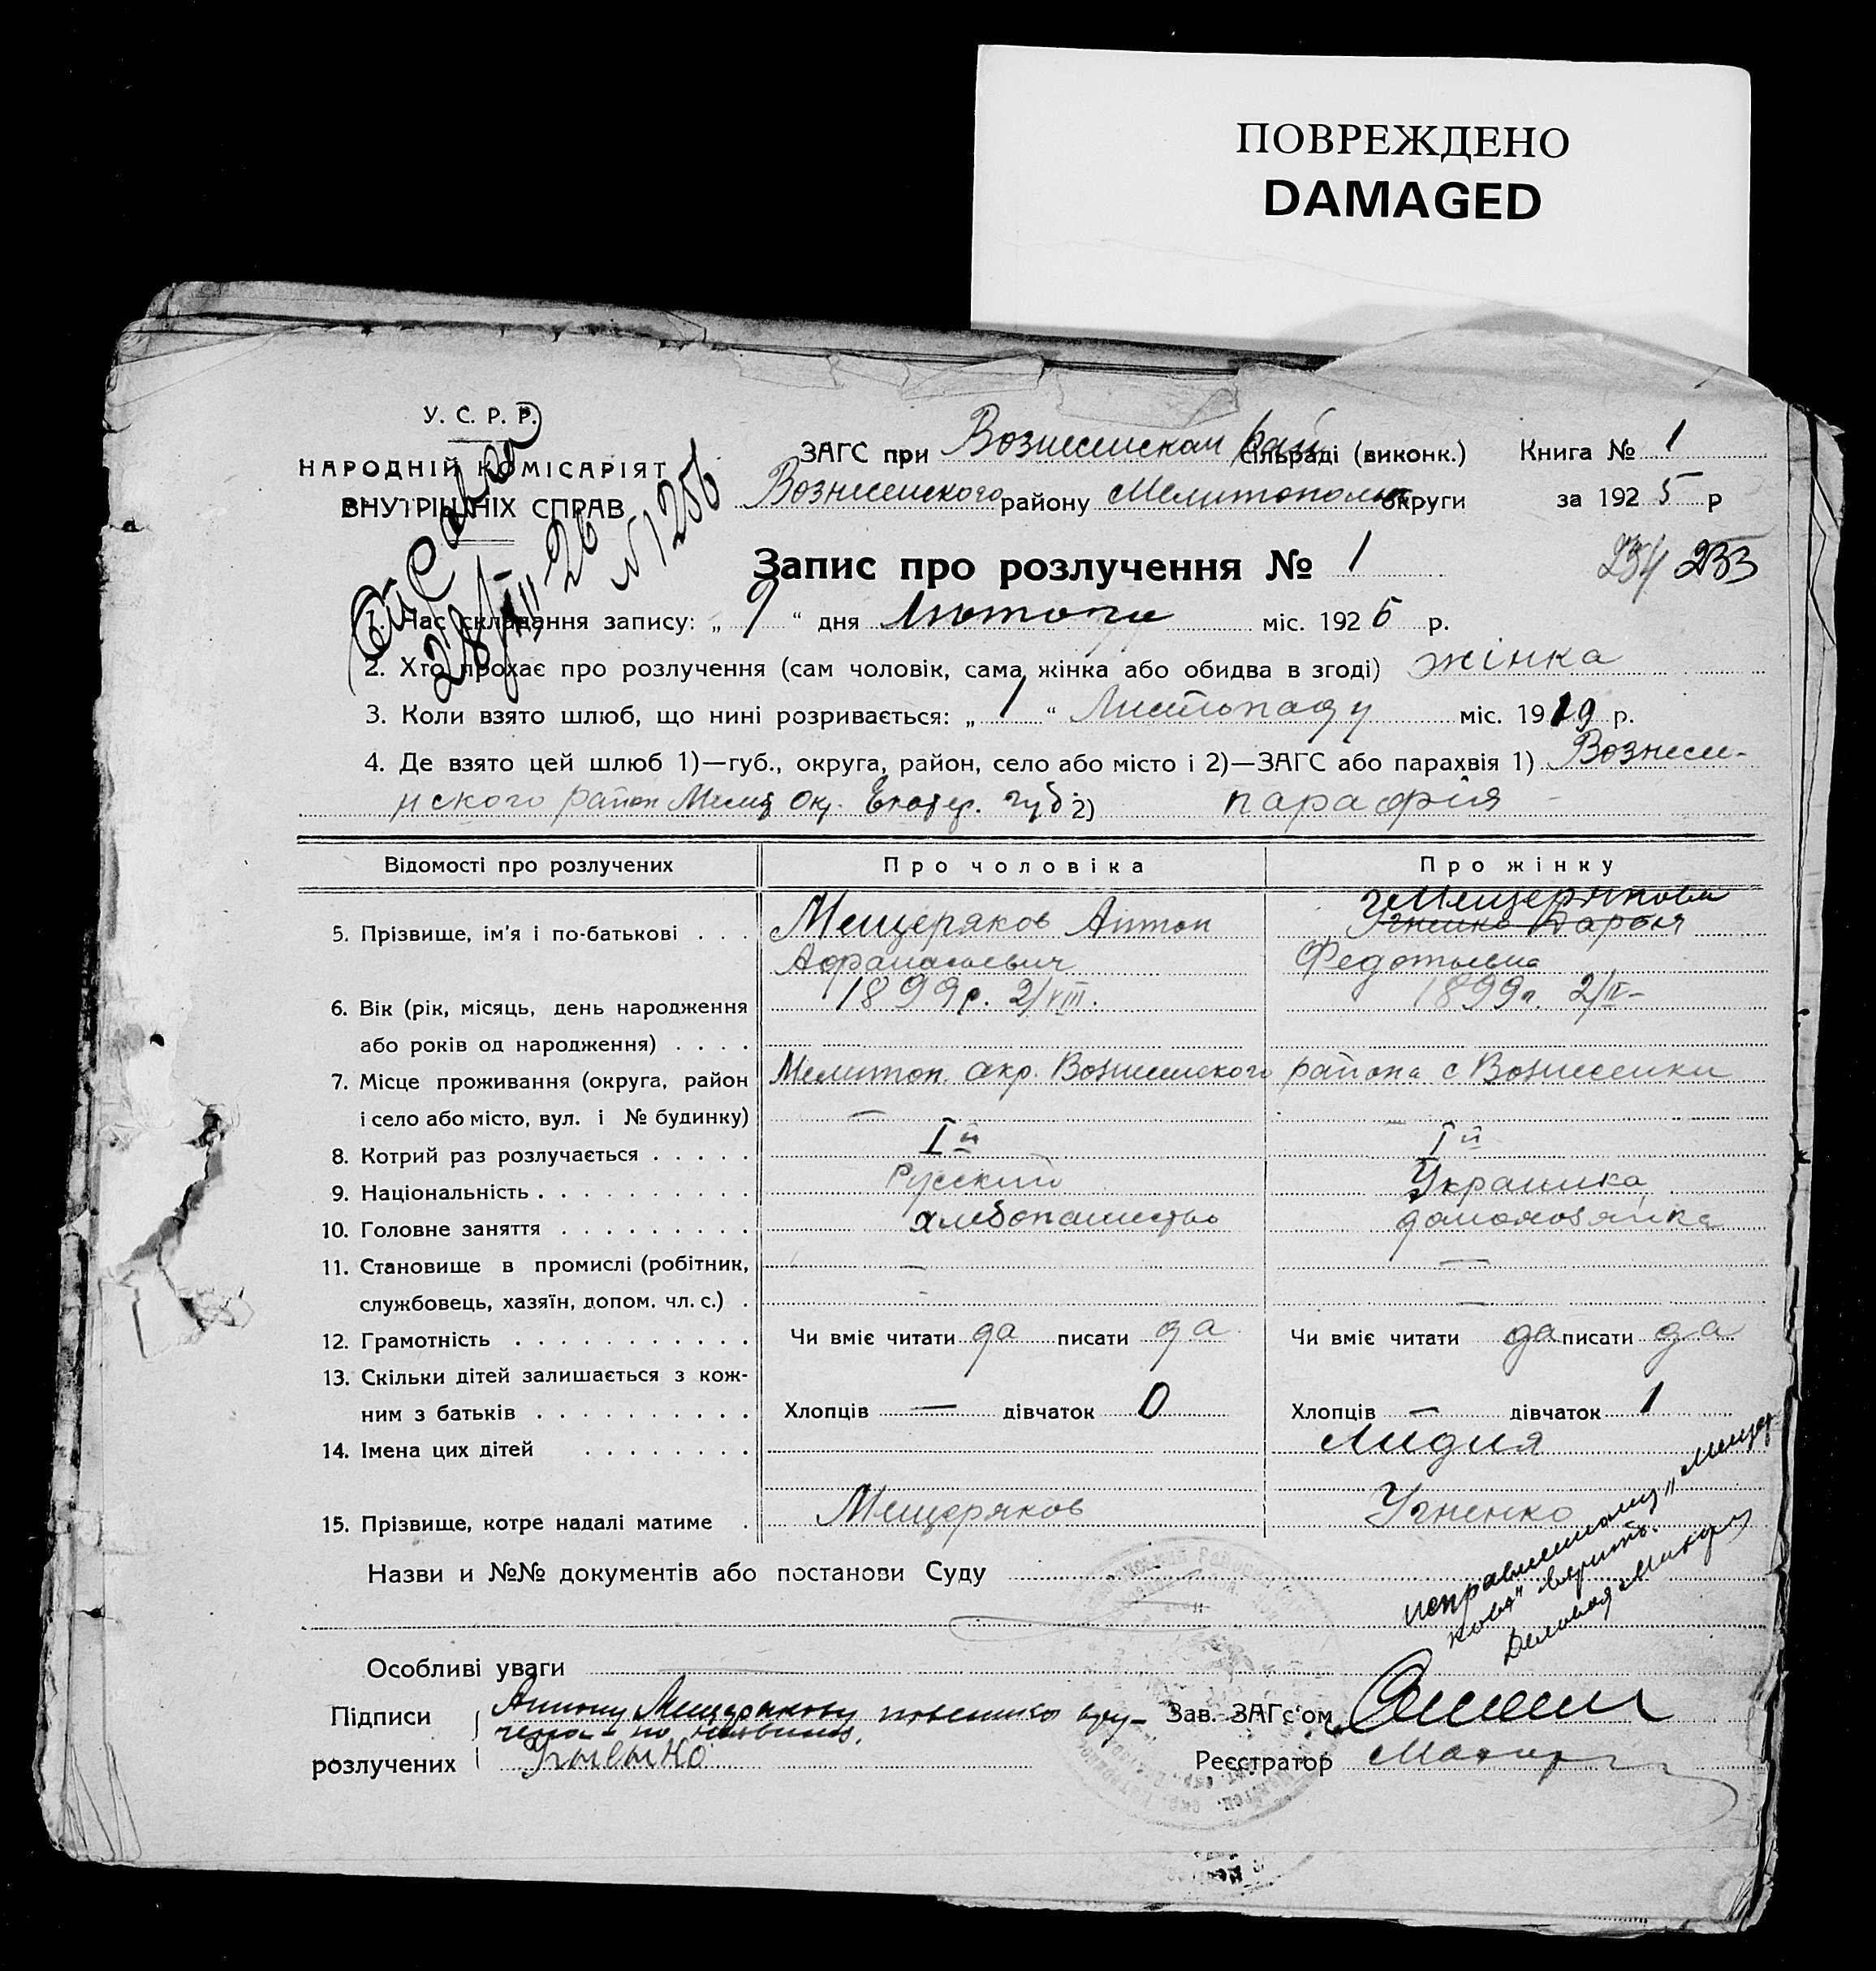 ПОВРЕЖДЕНО
DAMAGED
У. С. Р. Р.
НАРОДНІЙ КОМІСАРІЯТ
ВНУТРІШНІХ СПРАВ
28/XII 26
№ 1256
ЗАГС при Вознесенском рай сільраді (виконк.) Книга № 1
Вознесенского району Мелитополь округи за 1925 р
Запис про розлучення № 1
234 233
1. Час складання запису: „ 9 “ дня Лютого міс. 1925 р.
2. Хто прохає про розлучення (сам чоловік, сама жінка або обидва в згоді) жінка
3. Коли взято шлюб, що нині розривається: „ 1 “ Листопаду міс. 1919 р.
4. Де взято цей шлюб 1)—губ., округа, район, село або місто і 2)—ЗАГС або парахвія 1) Вознесе-
нского район Мелит Окр. Екатер. губ 2) парафія
Відомості про розлучених Про чоловіка Про жінку
Мещерякова
5. Прізвище, ім'я і по-батькові . . . Мещеряков Антон Угненко Дарья
Афанасьевич Федотьевна
6. Вік (рік, місяць, день народження 1899р. 2/VIII. 1899г. 2/IV-
або років од народження) . . . .
7. Місце проживання (округа, район Мелитоп. окр. Вознесенского района с Вознесенки
і село або місто, вул. і № будинку) — —
8. Котрий раз розлучається . . . . . Iй Iй
9. Національність . . . . . . . . . . Русский Украинка
10. Головне заняття . . . . . . . . . хлебопашество домохозяйка
11. Становище в промислі (робітник, — —
службовець, хазяїн, допом. чл. с.) . - —
12. Грамотність . . . . . . . . . . . Чи вміє читати да писати да Чи вміє читати да писати да
13. Скільки дітей залишається з кож-
ним з батьків . . . . . . . . . . Хлопців — дівчаток 0 Хлопців — дівчаток 1
14. Імена цих дітей . . . . . . . . Лидия
15. Прізвище, котре надалі матиме . Мещеряков Угненко
исправленному „Мещер
кова" верить.
Назви и №№ документів або постанови Суду
Особливі уваги
Підписи Антону Мещерякову повестка вру-
чена
розлучених
Зав. ЗАГс'ом
Реєстратор